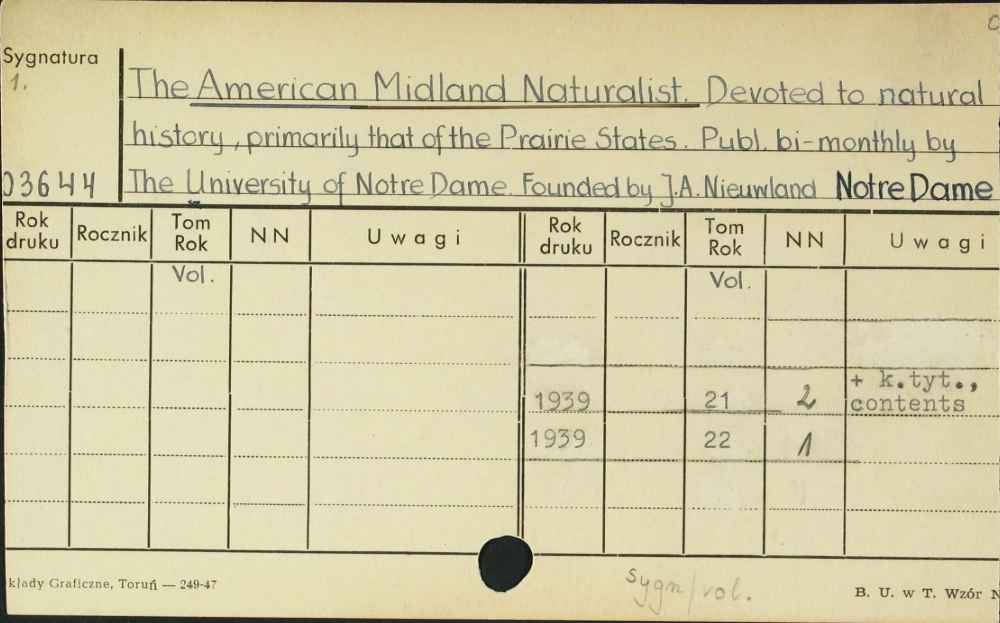 Sygnatura
1.
The American Midland Naturalist. Devoted to natural
history, primarily that of the Prairie States. Publ. bi-monthly by
03644 The University of Notre Dame. Founded by J.A. Nieuwland Notre Dame
Rok druku Rocznik Tom Rok NN Uwagi Rok druku Rocznik Tom Rok NN Uwagi
Vol. Vol.
+ k.tyt.,
1939 21 2 contents
1939 22 1
kłady Graficzne, Toruń — 249-47
sygn/vol.
B. U. w T. Wzór N